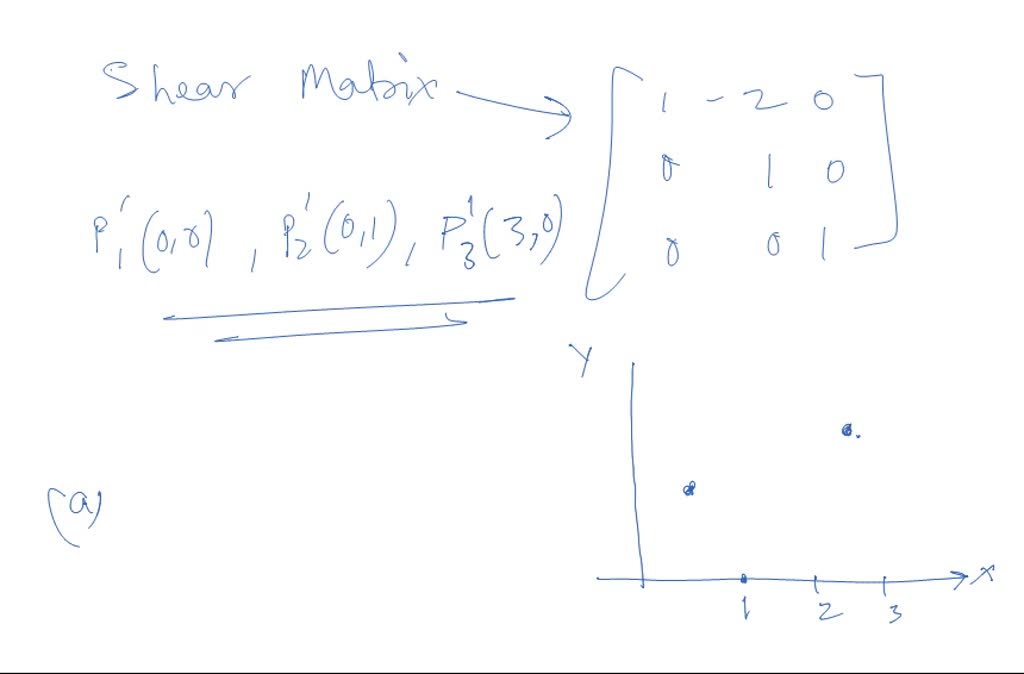 Shear Matrix →
[ 1 -2 0
0 1 0
0 0 1 ]
P₁'(0,0), P₂'(0,1), P₃'(3,0)
Y
(a)
X
1 2 3